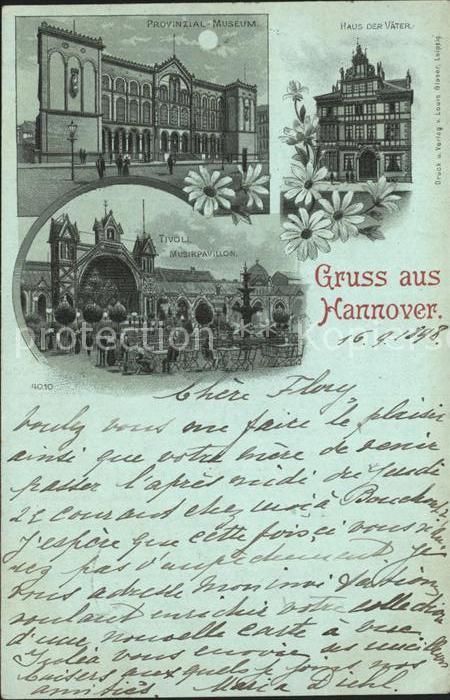 PROVINZIAL-MUSEUM.
HAUS DER VÄTER.
Druck u. Verlag v. Louis Glaser, Leipzig.
TIVOLI.
MUSIKPAVILLON.
Gruss aus
Hannover.
4010
16.9.1898
protection
Chère Flory,
voulez vous me faire le plaisir
ainsi que votre mère de venir
passer l'après midi du Jeudi
22 courant chez moi à
J'espère que cette fois ci vous n'au
rez pas d'empêchement. Je
vous adresse mon invitation
voulant enrichir votre collection
d'une nouvelle carte à vue.
vous envoie ses meilleurs
baisers auxquels je joins mes
amitiés. Maria Diehl